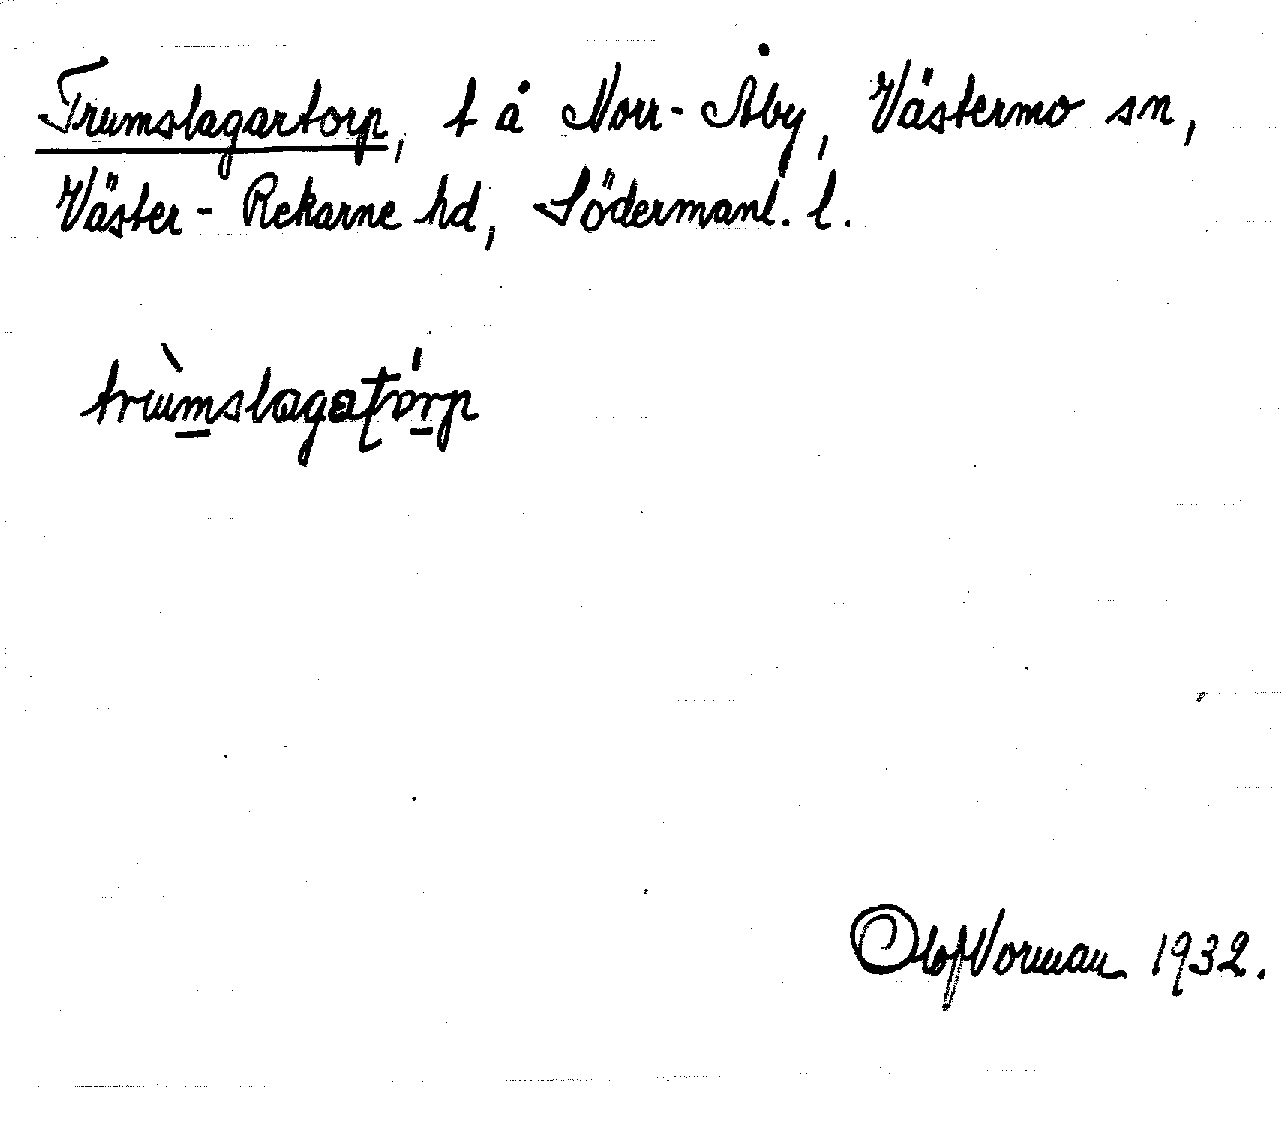 Trumslagartorp, t å Norr-Åby, Västermo sn,
Väster-Rekarne hd, Södermanl. l.
trùmslagaʈórp
Olof Norman 1932.